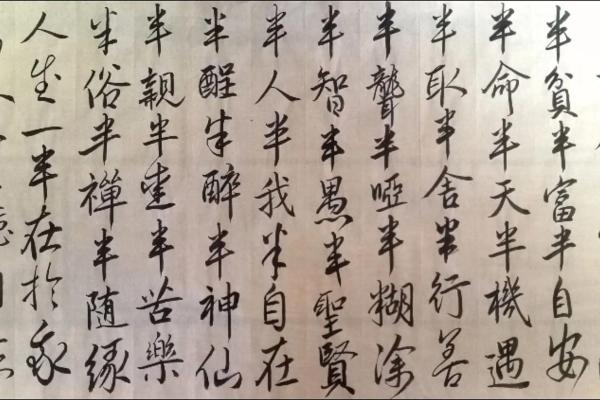 半貧半富半自安
半命半天半機遇
半取半舍半行善
半聾半啞半糊涂
半智半愚半聖賢
半人半我半自在
半醒半醉半神仙
半親半愛半苦樂
半俗半禪半随緣
人生一半在於我